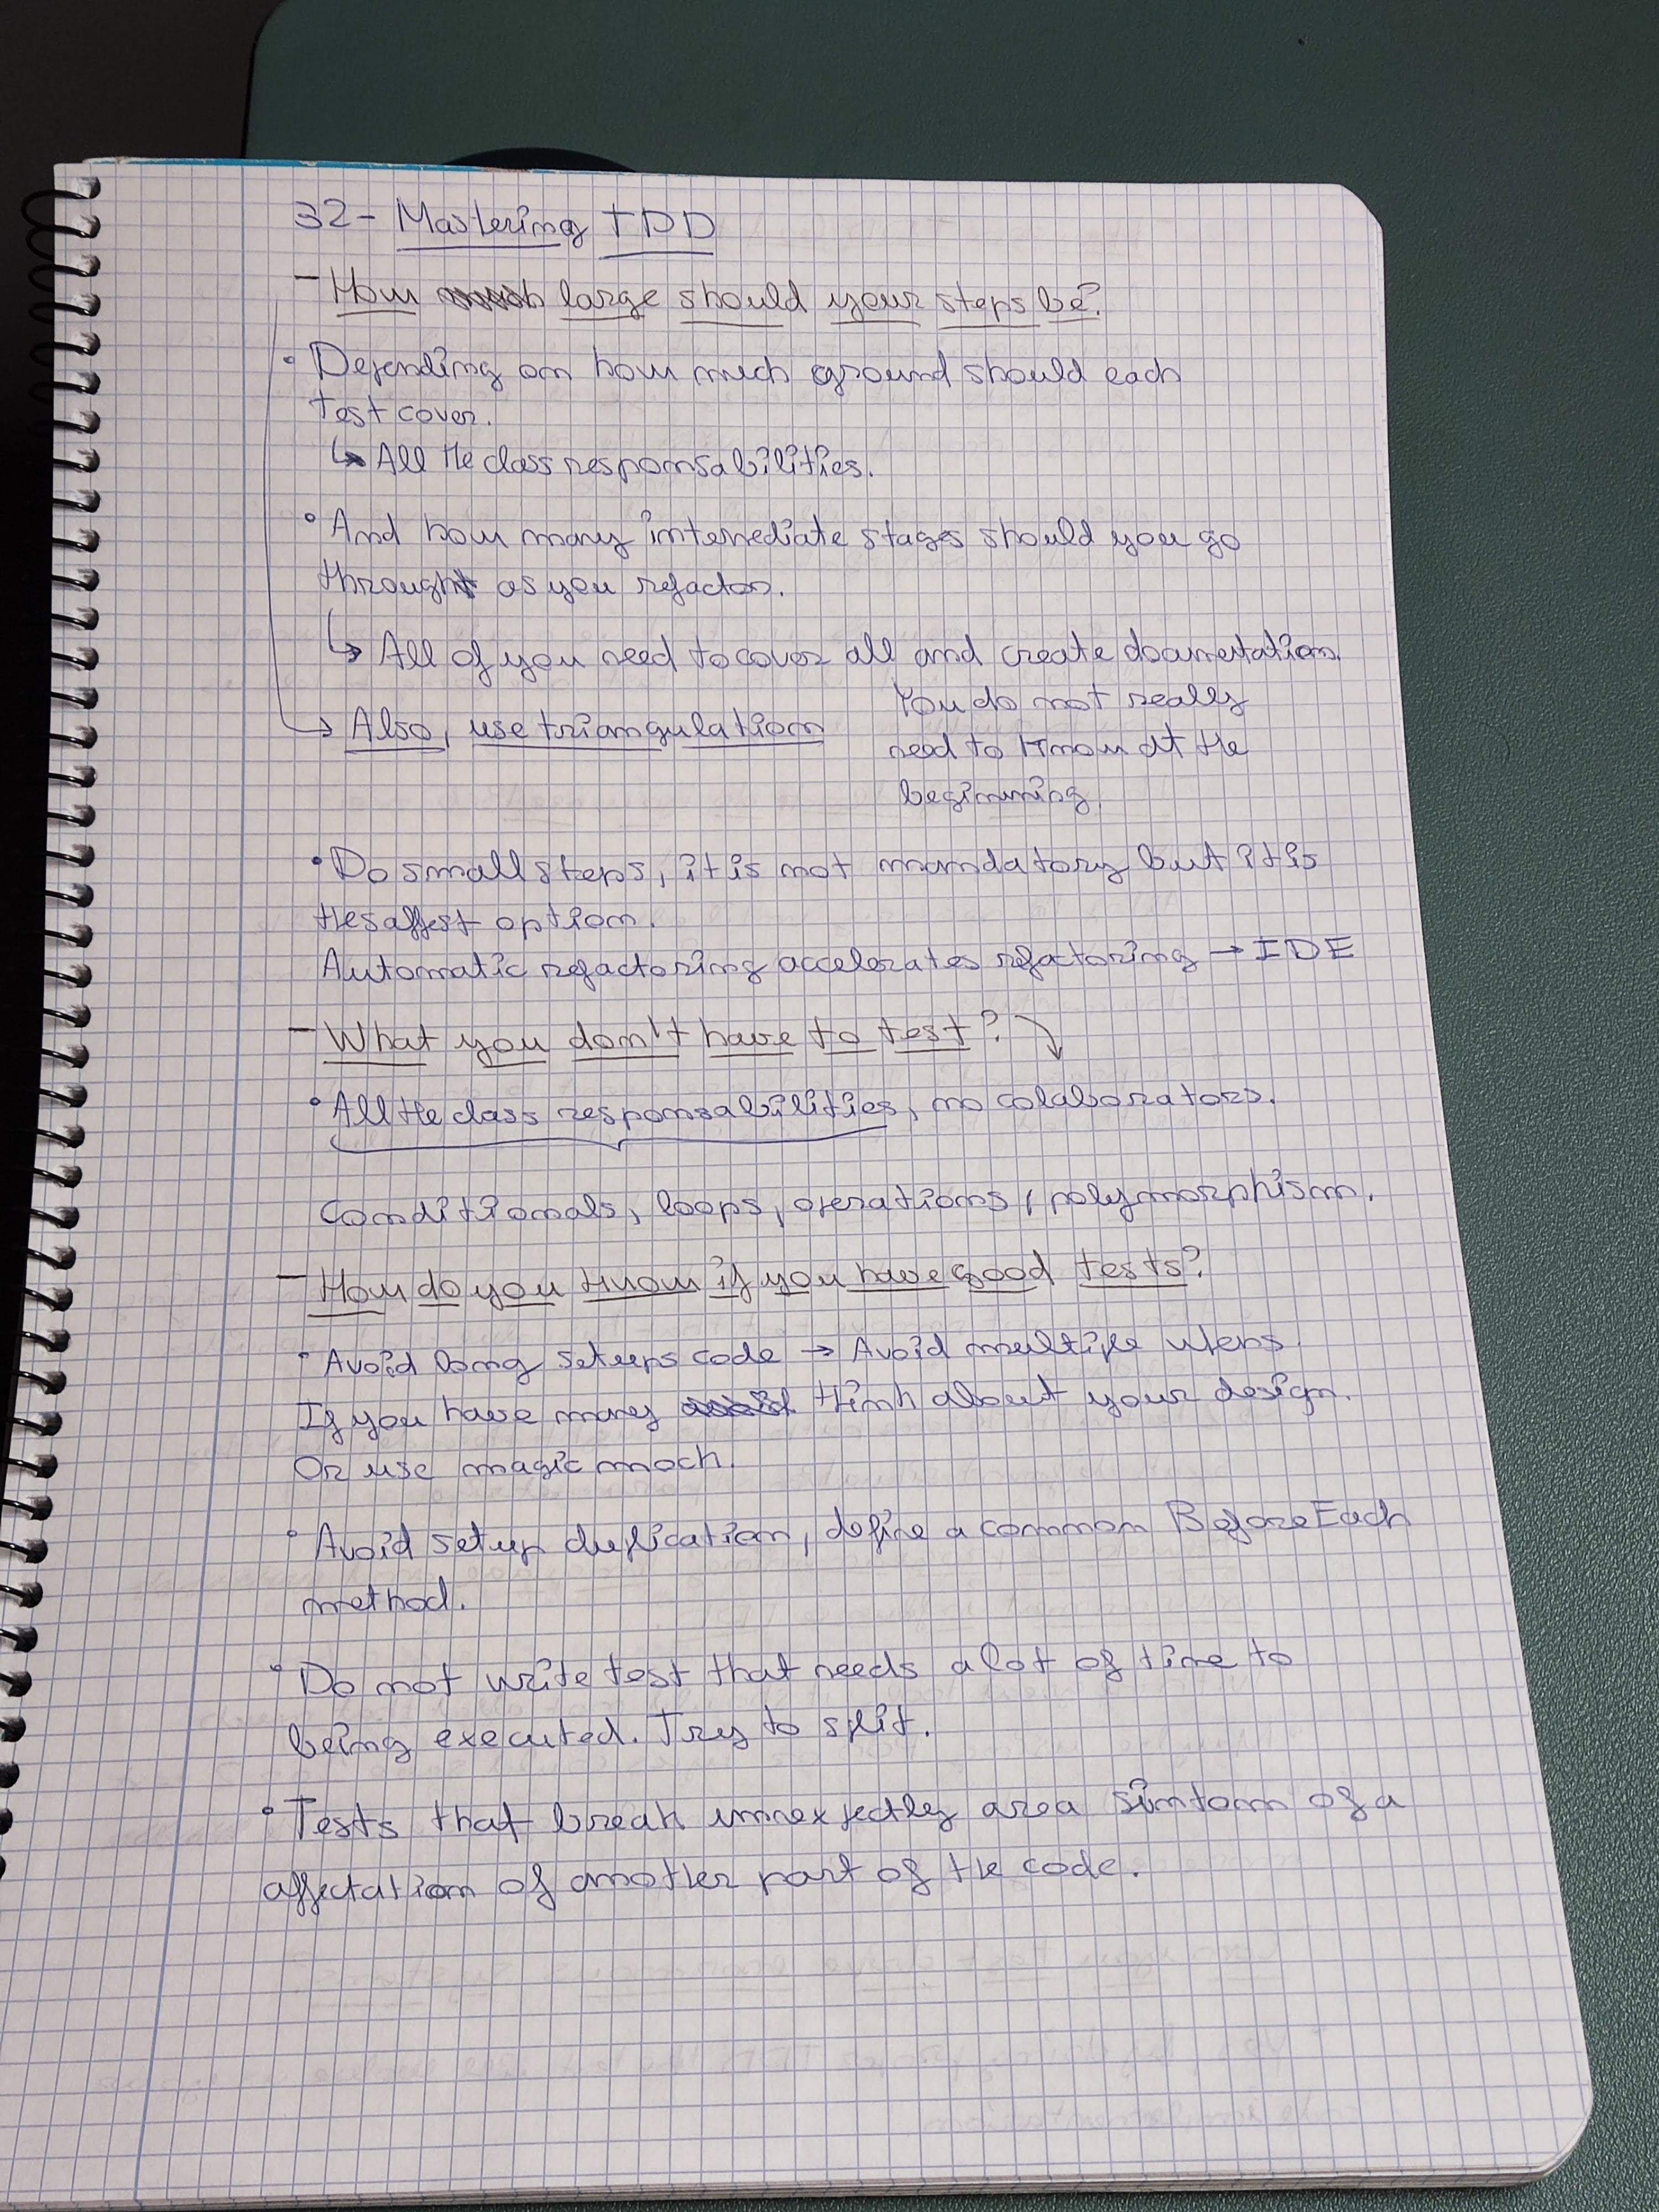 32- Mastering TDD
- How large should your steps be?
• Depending on how much ground should each
test cover.
↳ All the class responsabilities.
• And how many intermediate stages should you go
throught as you refactor.
↳ All of you need to cover all and create documentation.
You do not really
→ Also, use triangulation
need to know at the
beginning.
• Do small steps, it is not mandatory but it is
the saffest option.
Automatic refactoring accelerates refactoring → IDE
- What you don't have to test?
• All the class responsabilities, no colaborators.
Conditionals, loops, operations, polymorphism.
- How do you know if you have good tests?
• Avoid long setups code → Avoid multiple
If you have many think about your design.
Or use magic mock.
• Avoid setup duplication, define a common BeforeEach
method.
• Do not write test that needs a lot of time to
being executed. Try to split.
• Tests that break unnexpectly are a simtom of a
affectation of another part of the code.